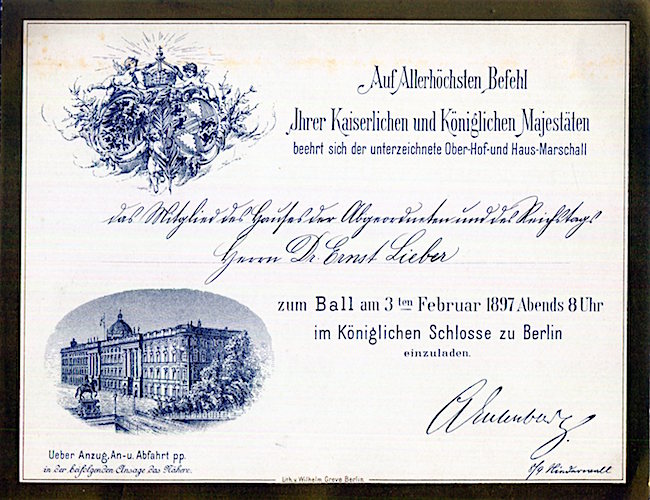 Auf Allerhöchsten Befehl
Ihrer Kaiserlichen und Königlichen Majestäten
beehrt sich der unterzeichnete Ober-Hof-und Haus-Marschall
das Mitglied des Hauses der Abgeordneten und des Reichstags
Herrn Dr. Ernst Lieber
zum Ball am 3ten Februar 1897 Abends 8 Uhr
im Königlichen Schlosse zu Berlin
einzuladen.
Ueber Anzug, An-u. Abfahrt pp.
in der beifolgenden Ansage das Nähere.
Lith. v. Wilhelm Greve Berlin.